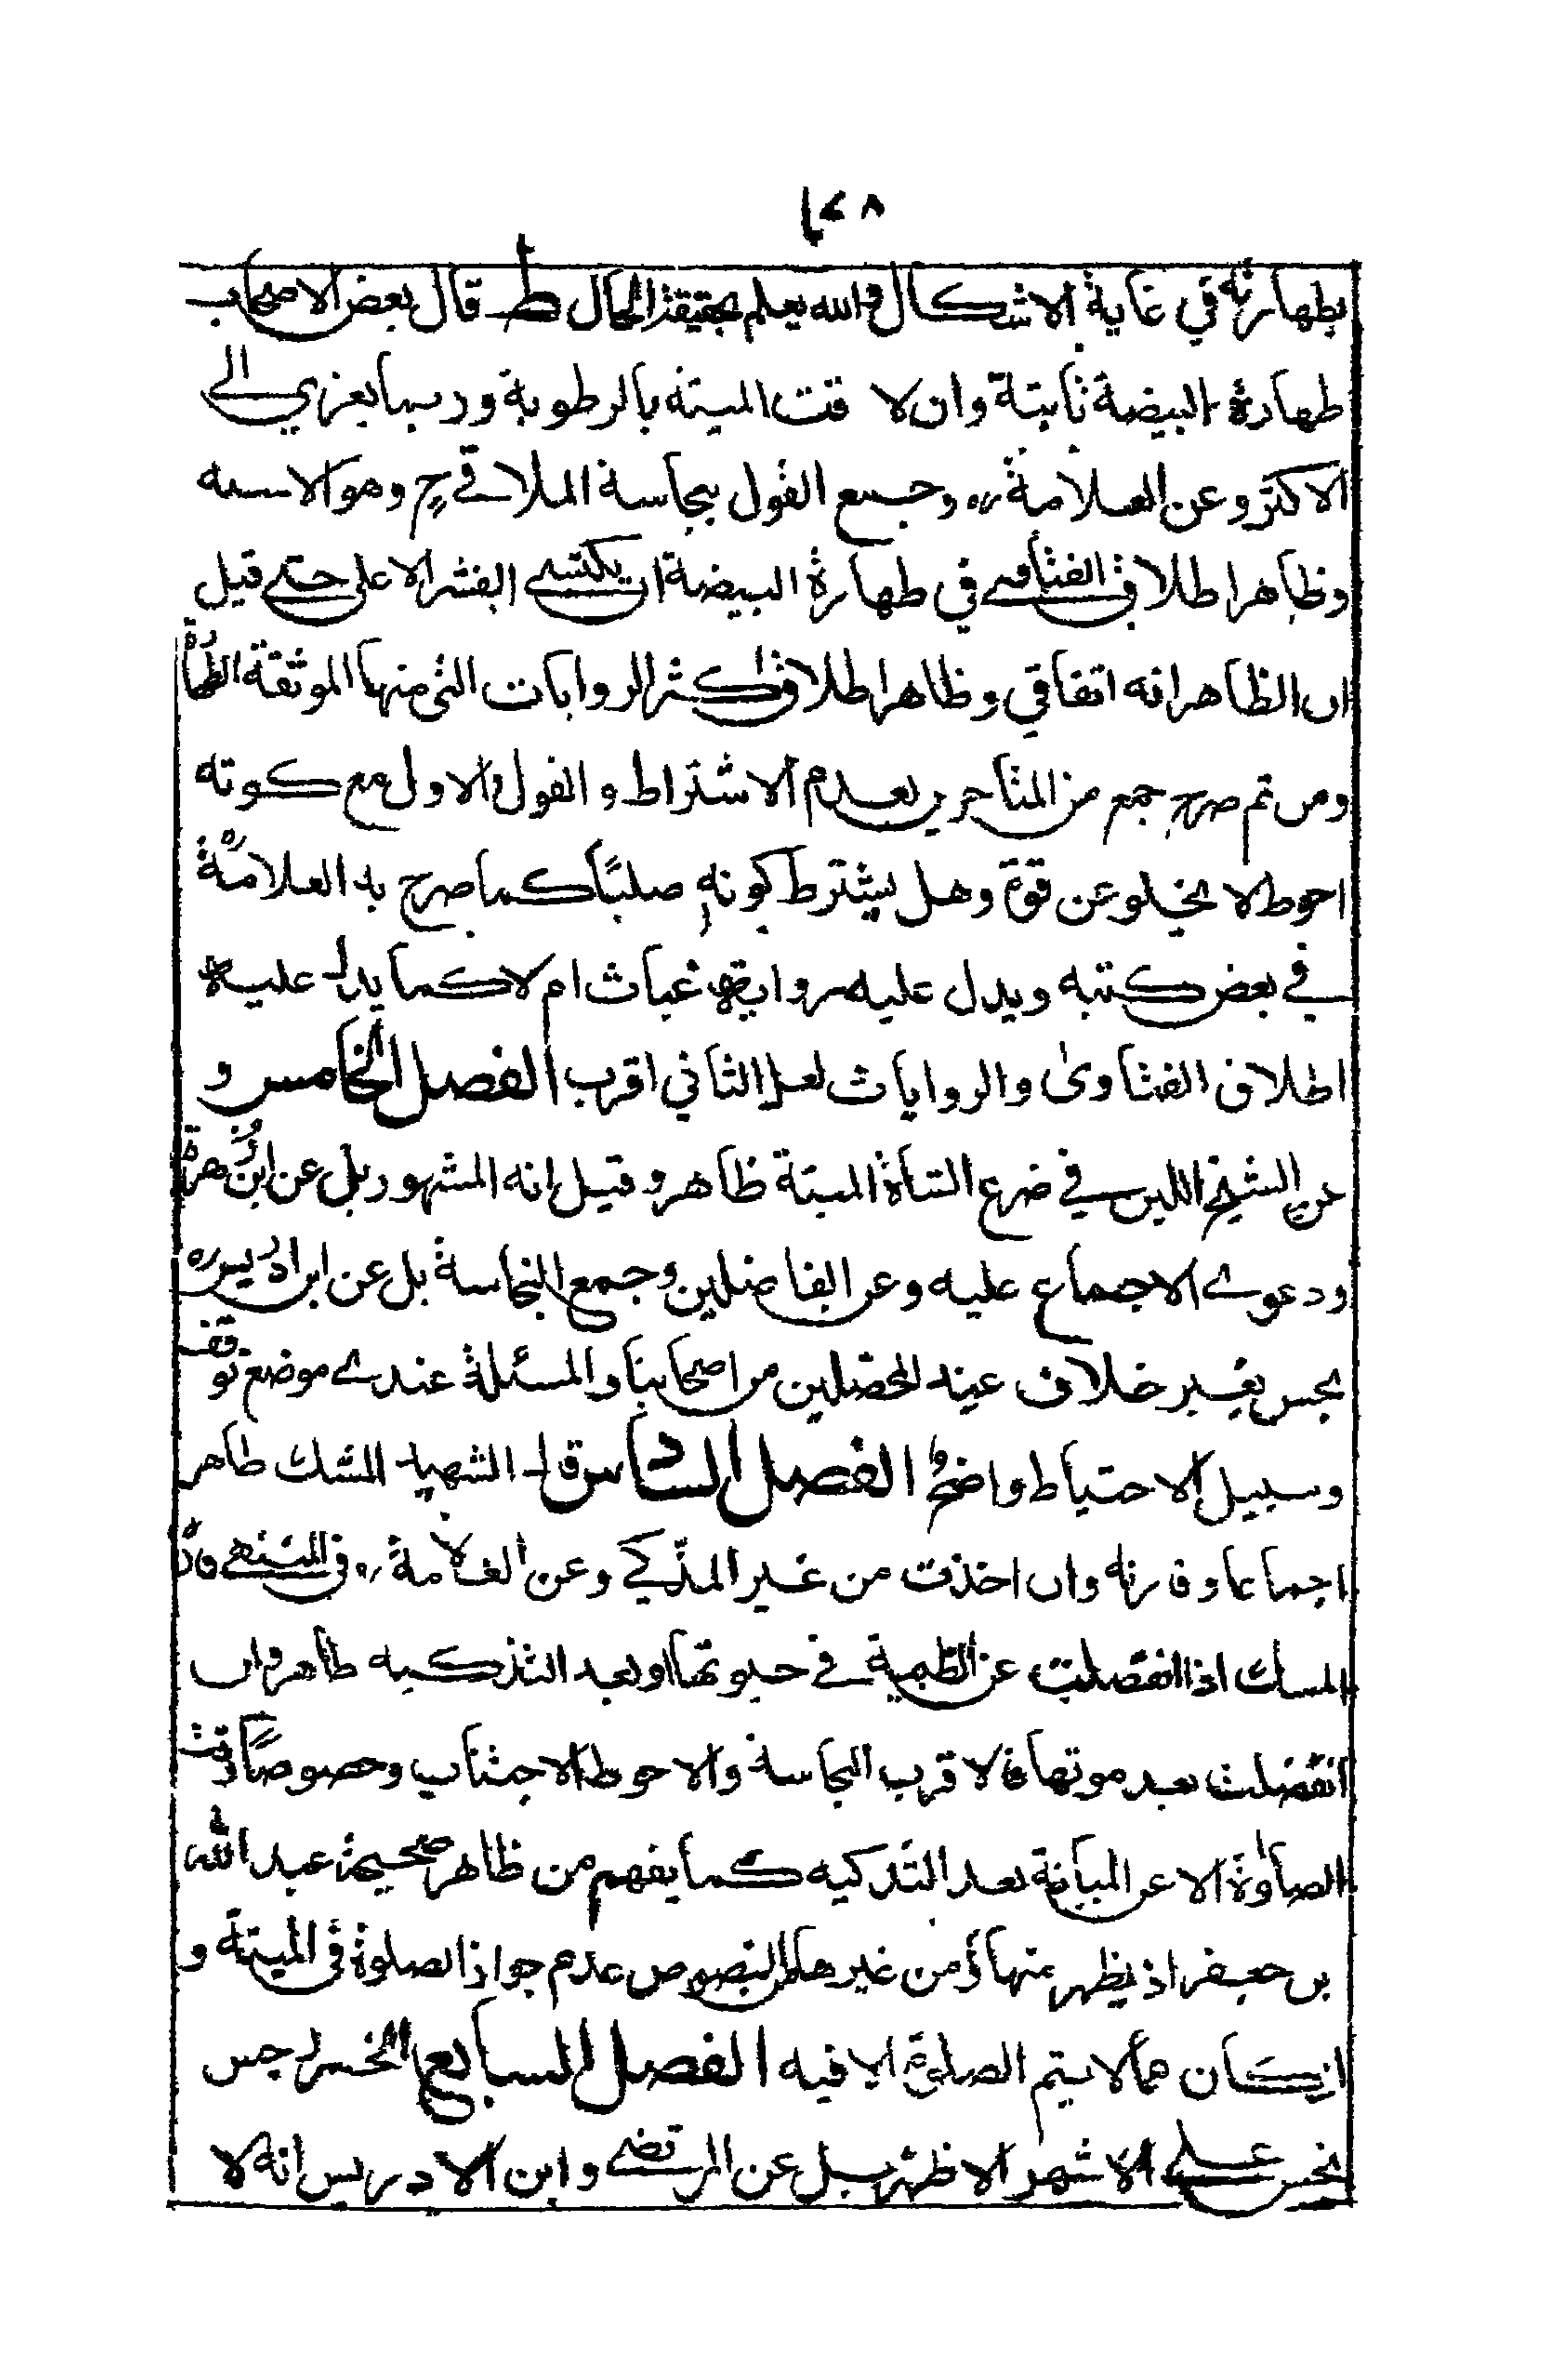 بطهارته في غاية الاشكال والله يعلم بحقيقة الحال ط قال بعض الاصحاب
طهارة البيضة ثابتة وان لاقت الميتة بالرطوبة وربما يعزي الى
الاكثر وعن العلامة ره وجمع القول بنجاسة الملاقي ح وهو الاسد
وظاهر اطلاق الفتاوى في طهارة البيضة ان يكتسى القشر الاعلى حتى قيل
ان الظاهر انه اتفاقي وظاهر اطلاق اكثر الروايات التي منها الموثقة الطهارة
ومن ثم صرح جمع من المتاخرين بعدم الاشتراط والقول الاول مع كونه
احوط لا يخلو عن قوة وهل يشترط كونه صلبًا كما صرح به العلامة ره
في بعض كتبه ويدل عليه رواية غياث ام لا كما يدل عليه
اطلاق الفتاوى والروايات لعل الثاني اقرب الفصل الخامس و
عن الشيخ اللبن في ضرع الشاة الميتة ظاهر وقيل انه المشهور بل عن ابن زهرة
ودعوى الاجماع عليه وعن الفاضلين وجمع النجاسة بل عن ابن ادريس ره
نجس بغير خلاف عند المحصلين من اصحابنا والمسئلة عندي موضع توقف
وسبيل الاحتياط واضح الفصل السادس قال الشهيد المسك طاهر
اجماعا وفارته وان اخذت من غير المذكي وعن العلامة ره في المنتهى فارة
المسك اذا انفصلت عن الظبية في حيوتها او بعد التذكيه طاهر وان
انفصلت بعد موتها فالاقرب النجاسة والاحوط الاجتناب وخصوصًا وقت
الصلوة الا عن المبانة بعد التذكيه كما يفهم من ظاهر صحيحة عبد الله
بن جعفر اذ يظهر منها ومن غيرها من النصوص عدم جواز الصلوة في الميتة و
ان كان مما لا يتم الصلوة الا فيه الفصل السابع الخمر
نجس على الاشهر الاظهر بل عن المرتضى وابن الادريس انه لا